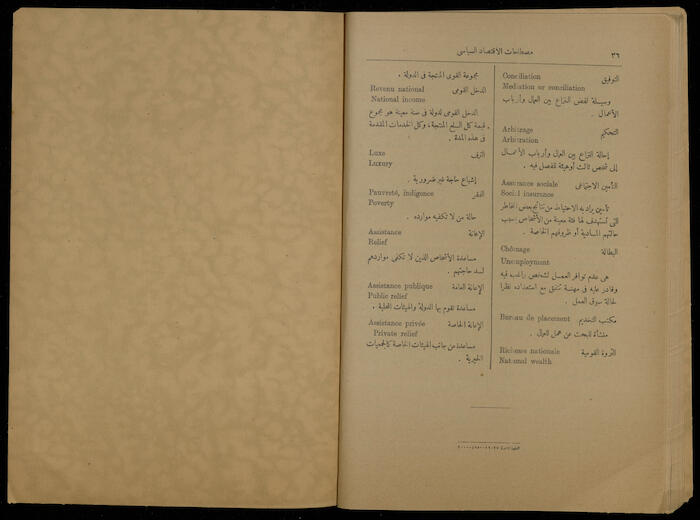 ٣٦
مصطلحات الاقتصاد السياسى
التوفيق Conciliation
Mediation or conciliation
وسيلة لفض النزاع بين العمال وأرباب
الأعمال .
التحكيم Arbitrage
Arbitration
إحالة النزاع بين العمال وأرباب الأعمال
إلى شخص ثالث أو هيئة للفصل فيه .
التأمين الاجتماعى Assurance sociale
Social insurance
تأمين يراد به الاحتياط من نتائج بعض المخاطر
التى تستهدف لها فئة معينة من الأشخاص بسبب
حالتهم المادية أو ظروفهم الخاصة .
البطالة Chômage
Unemployment
هى عدم توافر العمل لشخص راغب فيه
وقادر عليه فى مهنة تتفق مع استعداده نظرا
لحالة سوق العمل .
مكتب التخديم Bureau de placement
منشأة للبحث عن عمل للعمال .
الثروة القومية Richesse nationale
National wealth
مجموعة القوى المنتجة فى الدولة .
الدخل القومى Revenu national
National income
الدخل القومى لدولة فى سنة معينة هو مجموع
قيمة كل السلع المنتجة، وكل الخدمات المقدمة
فى هذه المدة .
الترف Luxe
Luxury
إشباع حاجة غير ضرورية .
الفقر Pauvreté, indigence
Poverty
حالة من لا تكفيه موارده .
الإعانة Assistance
Relief
مساعدة الأشخاص الذين لا تكفى مواردهم
لسد حاجتهم .
الإعانة العامة Assistance publique
Public relief
مساعدة تقوم بها الدولة والهيئات المحلية .
الإعانة الخاصة Assistance privée
Private relief
مساعدة من جانب الهيئات الخاصة كالجمعيات
الخيرية .